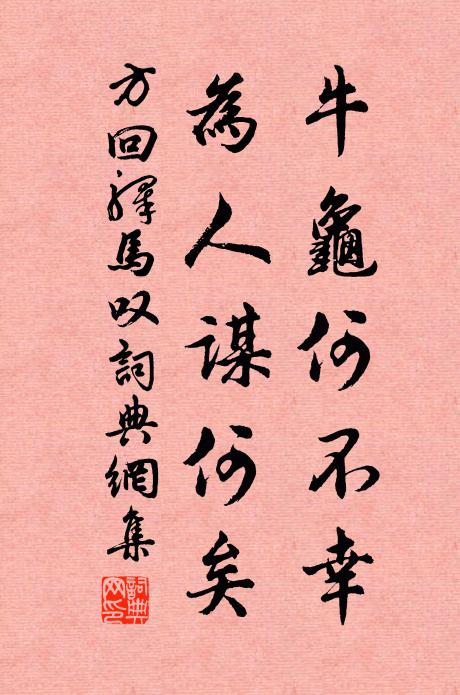 牛龜何不幸
為人謀何矣
方回驛馬叹詞典網集
詞典網印